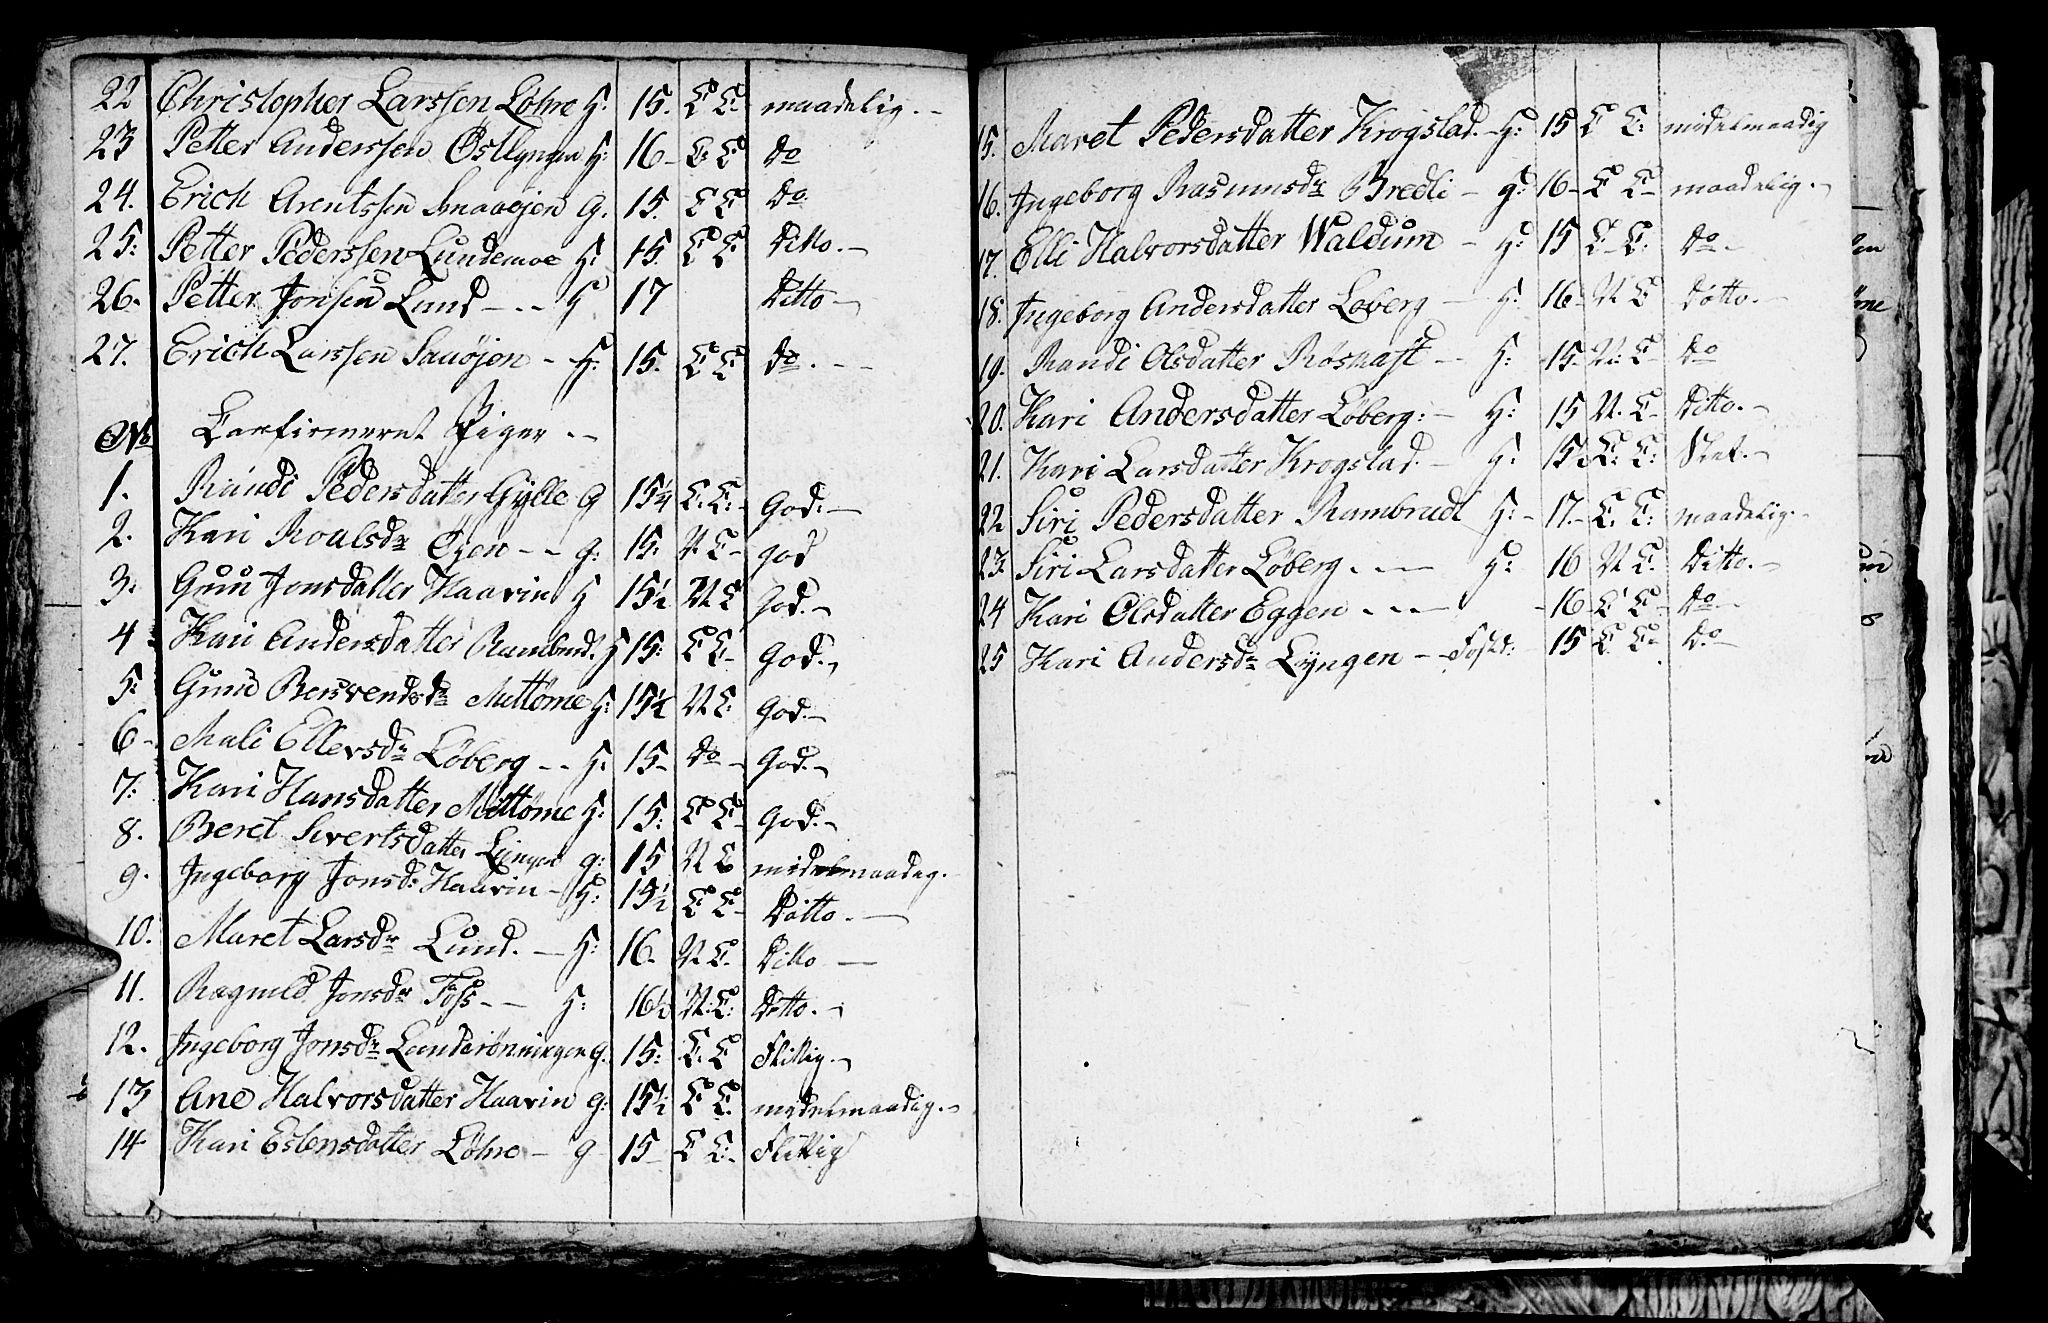 22 Christopher Larssen Løhre H: 15. C C- maadelig.-
23 Petter Anderssen Østlyngen H: 16- C: C Do
24. Erich Arentssen G. 15. C C Do
25: Petter Pederssen Lundemoe H. 15 C C Ditto.-
26. Petter Jonsen Lund - - - H 17 Ditto-
27. Erich Larssen Sauøjen - H: 15. C C Do. - -
No Confirmeret Piger --
1. Randi Pedersdatter Gylle G 15¼ C. C: God.-
2. Kari Roalsdr Øyen -- G: 15: N. C- god
3: Guru Jonsdatter Haavin H 15½ N. C God.-
4 Kari Andersdatter Rambrud. H 15: C C- God.-
5: Guru Bersvendsdr Mittømme H: 15½ N C: God.-
6- Mali Ellevsdr Løberg -- H. 15- Do- God.-
7: Kari Hansdatter Mittømme H: 15: C C- God.-
8. Beret Sivertsdatter Lyngen g: 15 N C midelmaadeg.
9. Ingeborg Jonsd: Haavin - H: 15½ C C- Ditto.-
10. Maret Larsdr Lund. - H: 16. N C. Ditto -
11. Ragnild Jonsdr Foss - - H: 16½ N: C: Ditto.-
12. Ingeborg Jonsdr Lunderønningen G. 15: C. C Flittig.-
13 Ane Halvorsdatter Haavin g: 15½ C C. midelmaadig.-
14 Kari Estensdatter Løhre - g 15- C C:- Flittig
15. Maret Pedersdatter Krogstad.- H: 15 C C: midelmaadig
16. Ingeborg Rasmusdr Bredli - H: 16- C C- maadelig.-
17. Elli Halvorsdatter Waldum - H: 15 C- C: Do-
18. Ingeborg Andersdatter Løberg - H. 16- N C Ditto.-
19. Randi Olsdatter Røshaft -- H: 15- N: C- Do
20. Kari Andersdatter Løberg: - H: 15 N. C- Ditto.-
21. Kari Larsdatter Krogstad.- H: 15½ C: C: Slet.-
22 Siri Pedersdatter Rambrudt H:- 17.- C. C: maadelig.-
23. Siri Larsdatter Løberg. - - - H: 16 N C. Ditto.-
24 Kari Olsdatter Eggen - - - - 16- C C- Do-
25 Kari Andersdr Lyngen -- 15 C C: Do-